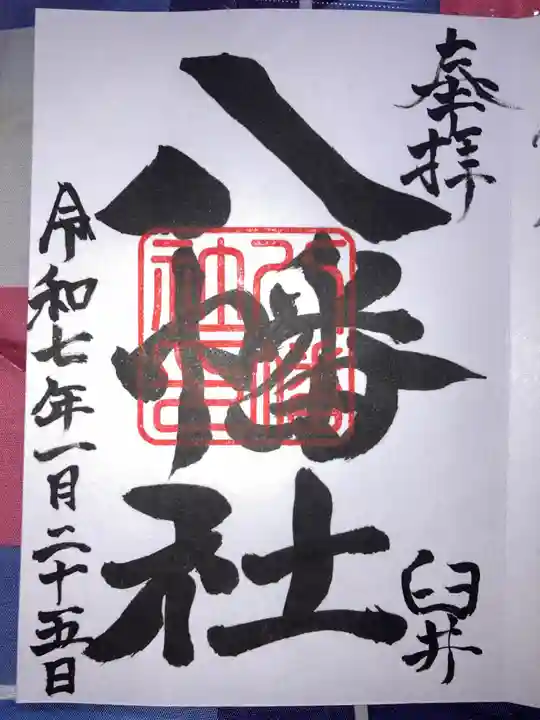 奉拝
臼井
八幡社
令和七年一月二十五日